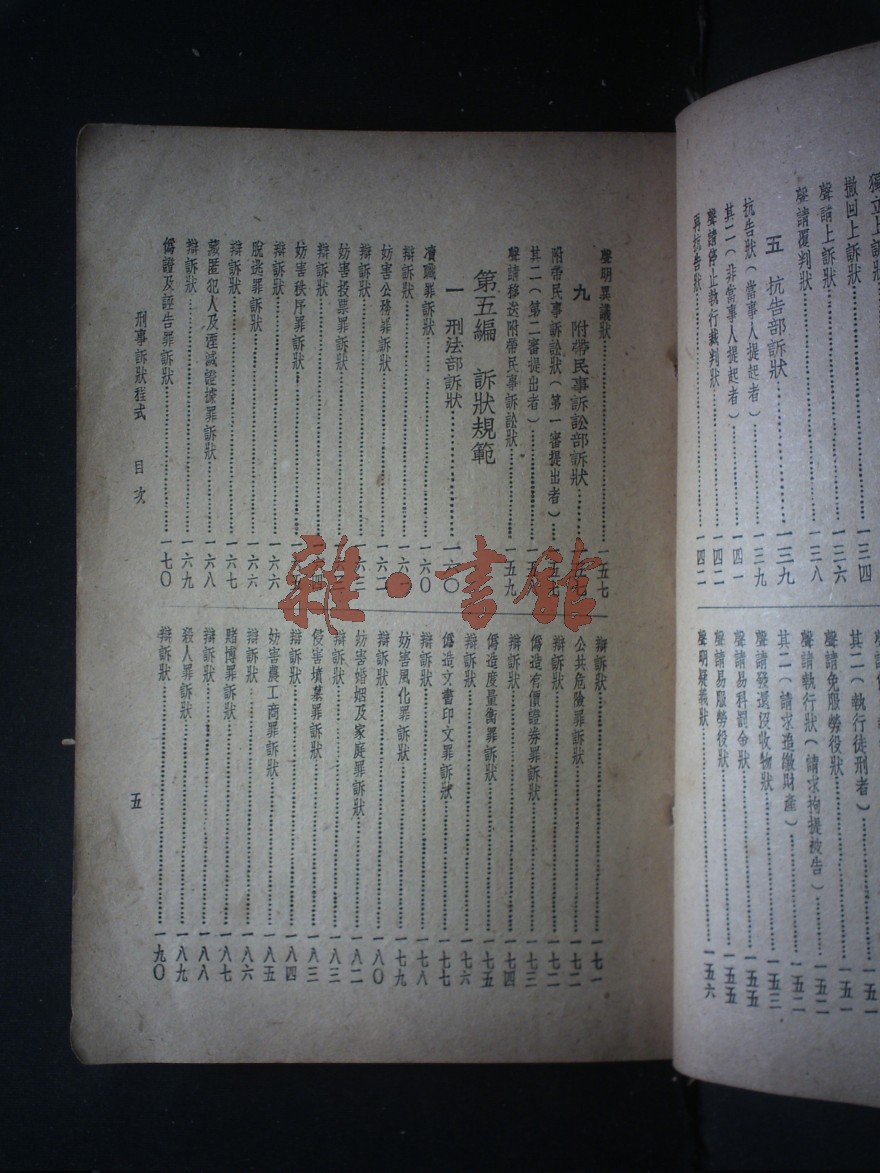 獨立上訴狀
撤回上訴狀……一三四
聲請上訴狀……一三六
聲請覆判狀……一三八
五 抗告部訴狀……一三九
抗告狀（當事人提起者）……一三九
其二（非當事人提起者）……一四一
聲請停止執行裁判狀……一四二
再抗告狀……一四二
其二（執行徒刑者）……一五一
聲請免服勞役狀……一五一
聲請執行狀（請求拘提被告）……一五二
其二（請求追繳財產）……一五二
聲請發還沒收物狀……一五三
聲請易科罰金狀……一五五
聲請易服勞役狀……一五五
聲明疑義狀……一五六
聲明異議狀……一五七
九 附帶民事訴訟部訴狀……一五七
附帶民事訴訟狀（第一審提出者）……一五七
其二（第二審提出者）……
聲請移送附帶民事訴訟狀……一五九
第五編 訴狀規範
一 刑法部訴狀……一六〇
瀆職罪訴狀……一六〇
辯訴狀……一六一
妨害公務罪訴狀……一六二
辯訴狀……一六二
妨害投票罪訴狀……
辯訴狀……一六四
妨害秩序罪訴狀……一六五
辯訴狀……一六六
脫逃罪訴狀……一六六
辯訴狀……一六七
藏匿犯人及湮滅證據罪訴狀……一六八
辯訴狀……一六九
偽證及誣告罪訴狀……一七〇
辯訴狀……一七一
公共危險罪訴狀……一七二
辯訴狀……一七二
偽造有價證券罪訴狀……一七三
辯訴狀……一七四
偽造度量衡罪訴狀……一七五
辯訴狀……一七六
偽造文書印文罪訴狀……一七七
辯訴狀……一七八
妨害風化罪訴狀……一七九
辯訴狀……一八〇
妨害婚姻及家庭罪訴狀……一八二
辯訴狀……一八三
侵害墳墓罪訴狀……一八三
辯訴狀……一八四
妨害農工商罪訴狀……一八五
辯訴狀……一八六
賭博罪訴狀……一八七
辯訴狀……一八八
殺人罪訴狀……一八九
辯訴狀……一九〇
刑事訴狀程式 目次
五
雜·書館